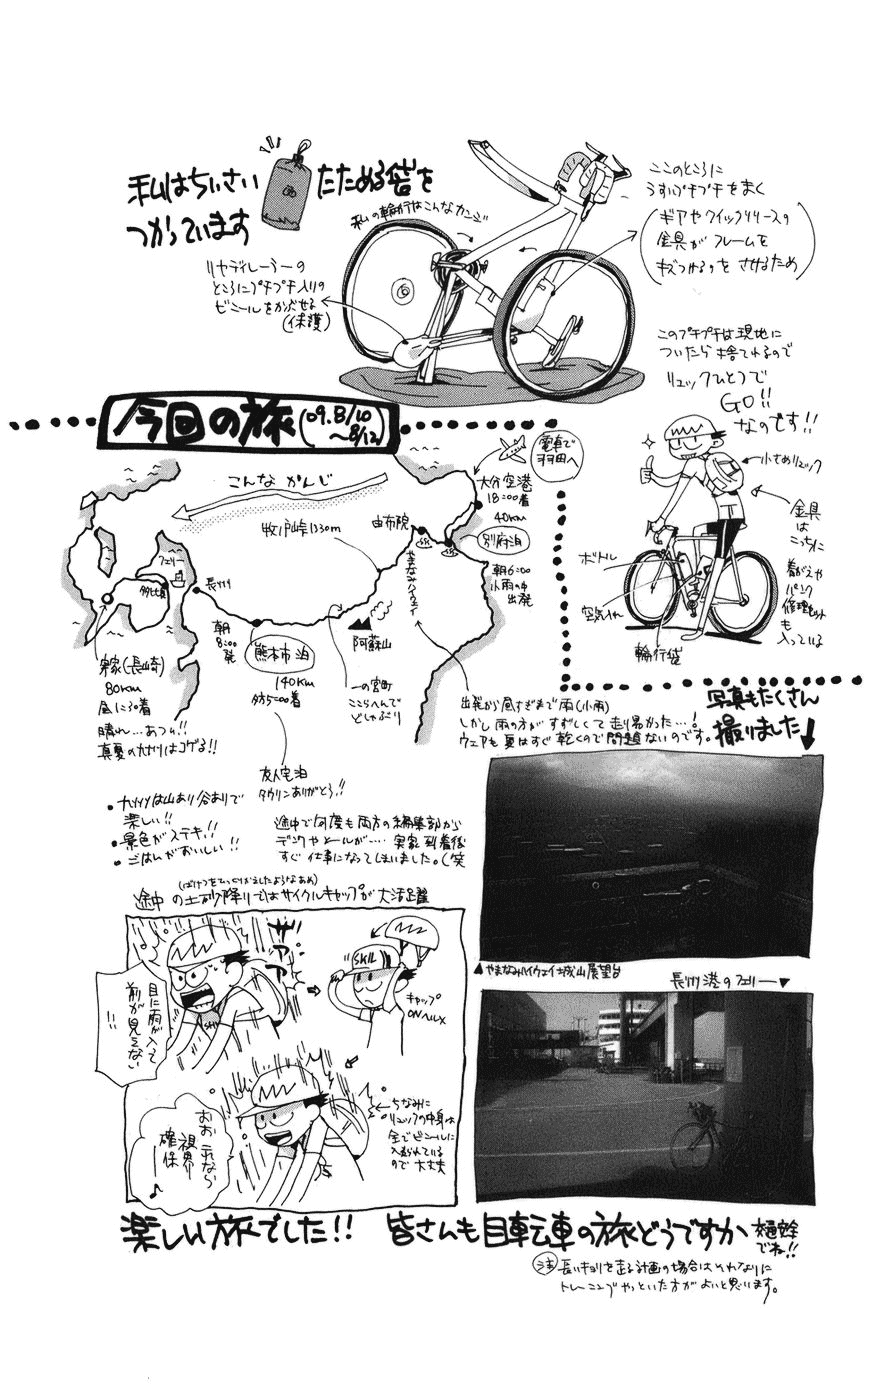 私はちいさい たためる袋を
つかっています
私の輪行はこんなカンジ
リヤディレーラーの
ところにプチプチ入りの
ビニールをかぶせる
(保護)
ここのところに
うすいプチプチをまく
(ギアやクイックリリースの
金具がフレームを
キズつけるのを させるため)
このプチプチは現地に
ついたら捨てれるので
リュックひとつで
GO!!
なのです!!
小さめリュック
金具
は
こっちに
着がえや
パンク
修理セット
も
入っている
ボトル
空気入れ
輪行袋
今回の旅(09.8/10
〜8/12)
こんな かんじ
電車で
羽田へ
大分空港
18:00着
40km
別府泊
朝6:00
小雨の中
出発
由布院
やまなみハイウェイ
牧ノ戸峠1330m
阿蘇山
一の宮町
ここらへんで
どしゃぶり
熊本市 泊
140km
夕方5:00着
朝
8:00
発
長洲
フェリー
多比良
実家(長崎)
80km
昼に到着
晴れ…あつい!!
真夏の九州はコゲる!!
友人宅泊
タウリンありがとう!!
出発から昼すぎまで雨(小雨)
しかし雨の方が すずしくて走り易かった…!
ウェアも夏はすぐ乾くので問題ないのです。
写真もたくさん
撮りました
●九州は山あり谷ありで
楽しい!!
●景色がステキ!!
●ごはんがおいしい!!
途中で何度も両方の編集部から
デンワやメールが…… 実家到着後
すぐ仕事になってしまいました。(笑
(ばけつをひっくりかえしたようなあめ)
途中 の土砂降りではサイクルキャップが大活躍
ザアアア
目に雨が入って
前が見えない
!!
SKIL
キャップ
ONヘルメ
おおこれなら
視界
確保
♪
ちなみに
リュックの中身は
全てビニールに
入れられている
ので大丈夫
▲やまなみハイウェイ城山展望台
長洲港のフェリー▼
楽しい旅でした!! 皆さんも自転車の旅どうですか
交通安全
でね!!
注 長いキョリを走る計画の場合はそれなりに
トレーニングやっといた方がよいと思います。